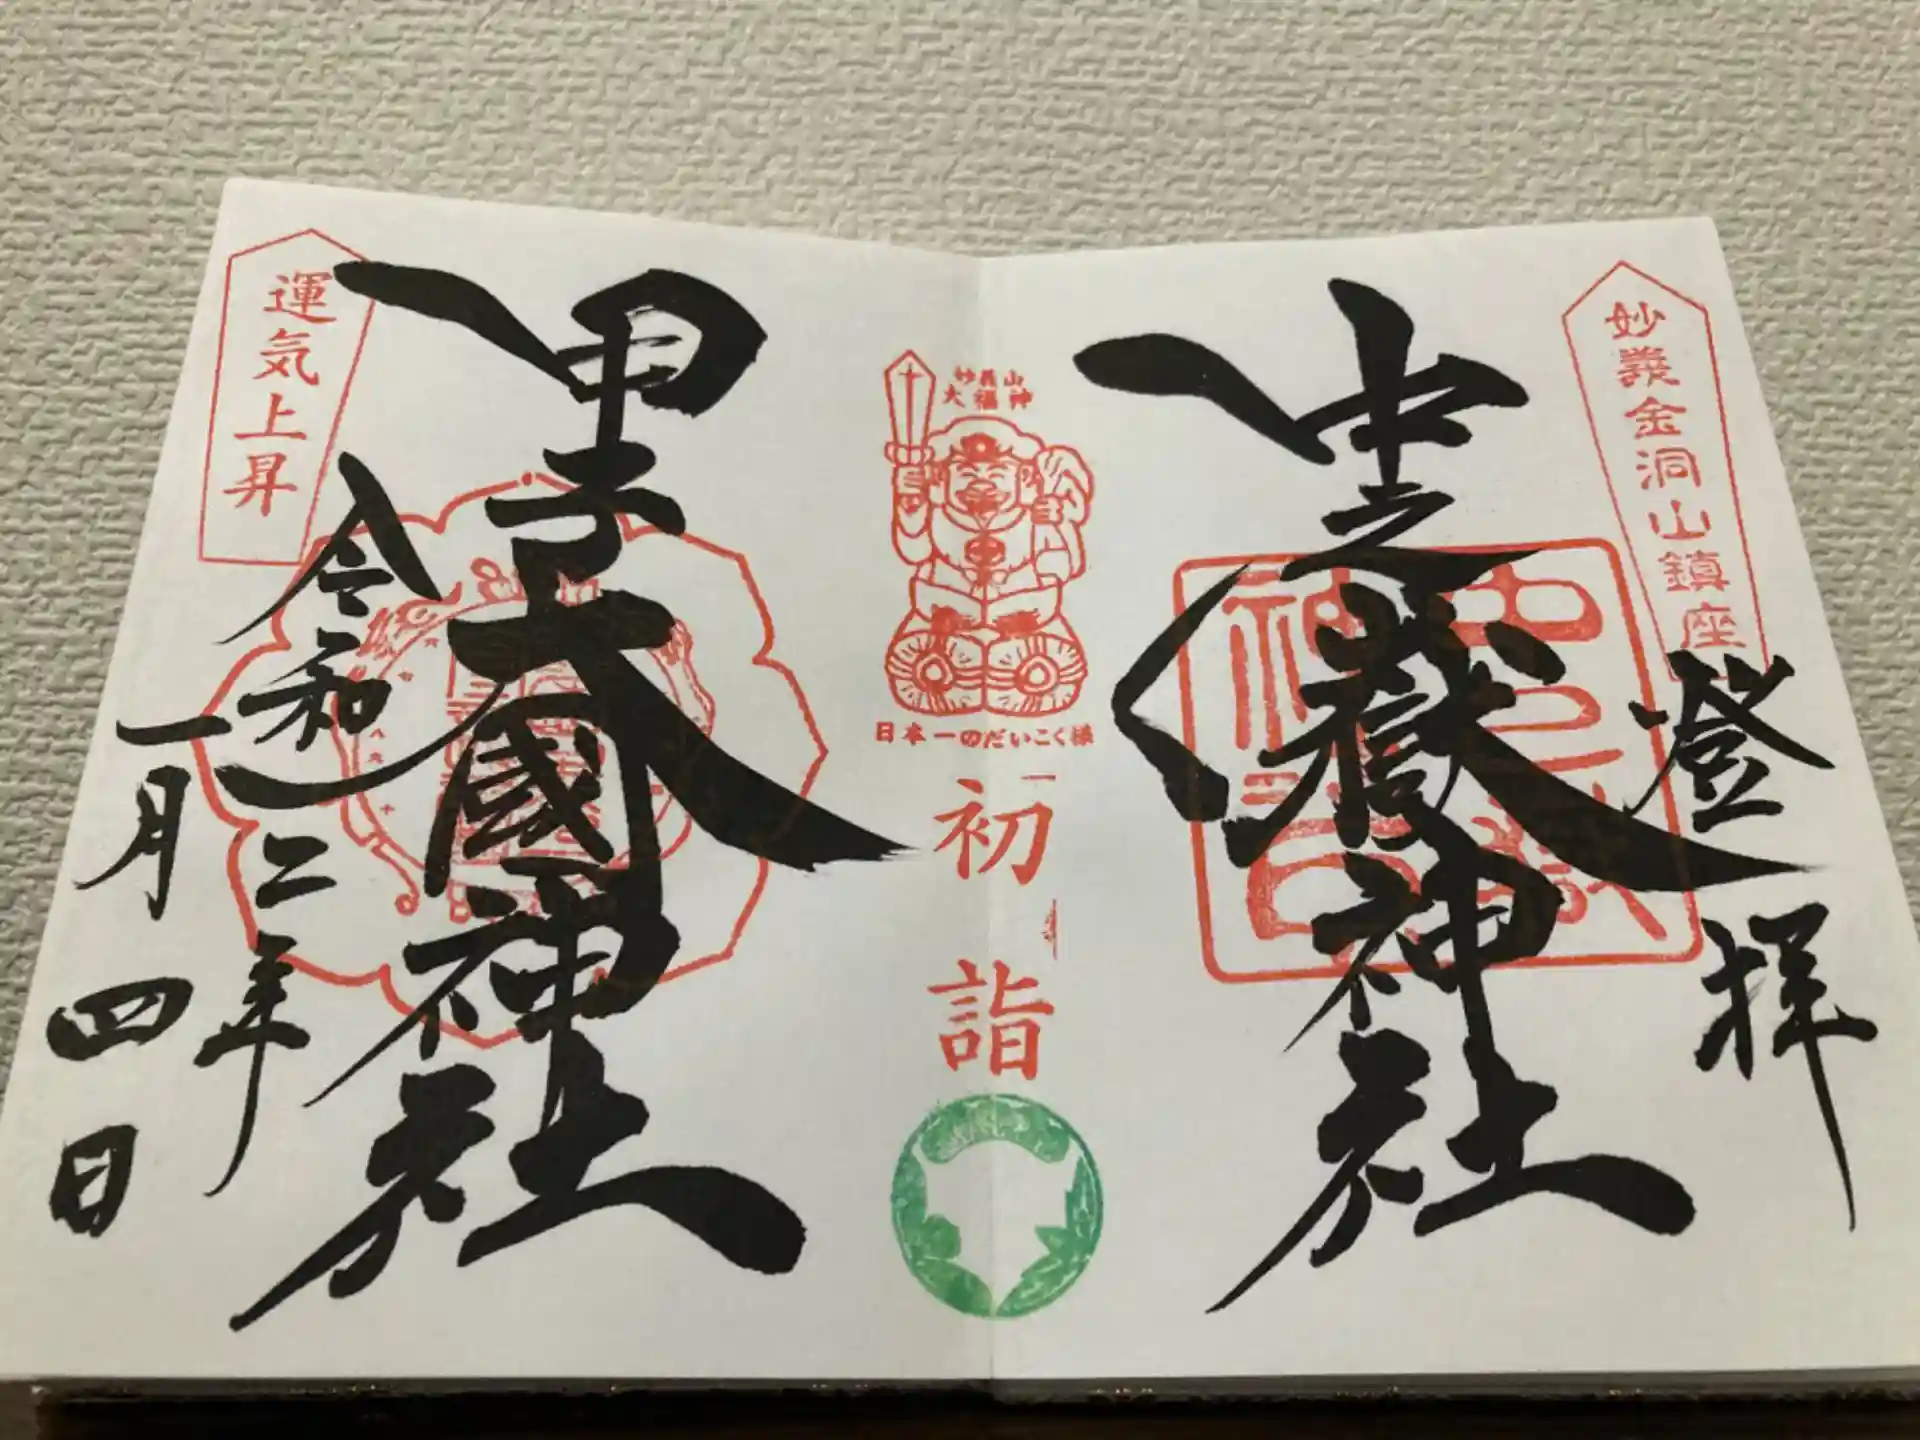 妙義金洞山鎮座
登拝
中之嶽神社
妙義山
大福神
日本一のだいこく様
初詣
甲子大國神社
運気上昇
令和二年
一月四日